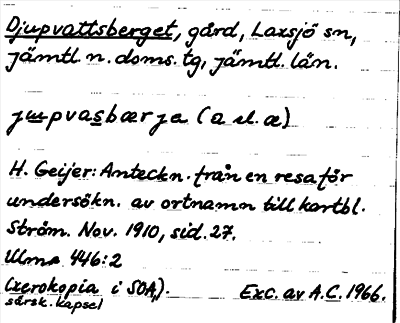 Djupvattsberget, gård, Laxsjö sn,
jämtl. n. doms. tg, jämtl. län.
jupvasbærja (a el. æ)
H. Geijer: Anteckn. från en resa för
undersökn. av ortnamn till kartbl.
Ström. Nov. 1910, sid. 27.
Ulma 446:2
(xerokopia i SOA,).
särsk. kapsel
Exc. av A.C. 1966.